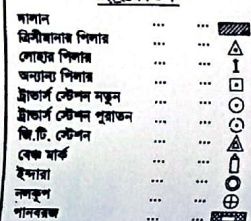 দালান ... ...
ত্রিসীমানার পিলার ... ...
লোহার পিলার ... ...
অন্যান্য পিলার ... ...
ট্রাভার্স স্টেশন নতুন ... ...
ট্রাভার্স স্টেশন পুরাতন ... ...
জি.টি. স্টেশন ... ...
বেঞ্চ মার্ক ... ...
ইন্দারা ... ...
নলকূপ ... ...
পানবরজ ... ...